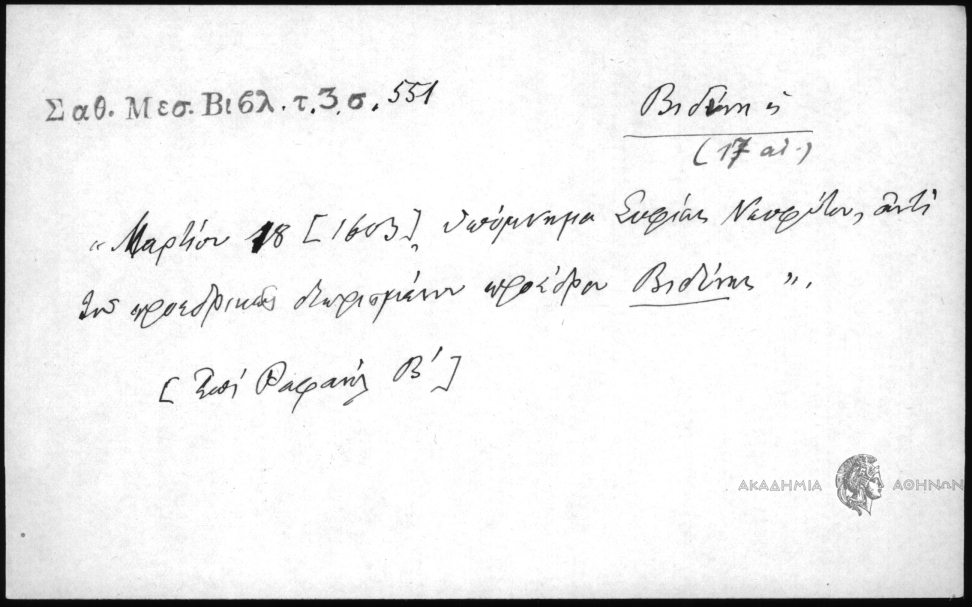 Σαθ. Μεσ. Βιβλ. τ. 3. σ. 551
Βιδύνης
(17 αι.)
" Μαρτίου 18 [1603], Υπόμνημα Σοφίας Νεοφύτου, αντί
του προεδρικώς διωρισμένου προέδρου Βιδύνης ".
[Επί Ραφαήλ Β']
ΑΚΑΔΗΜΙΑ ΑΘΗΝΩΝ